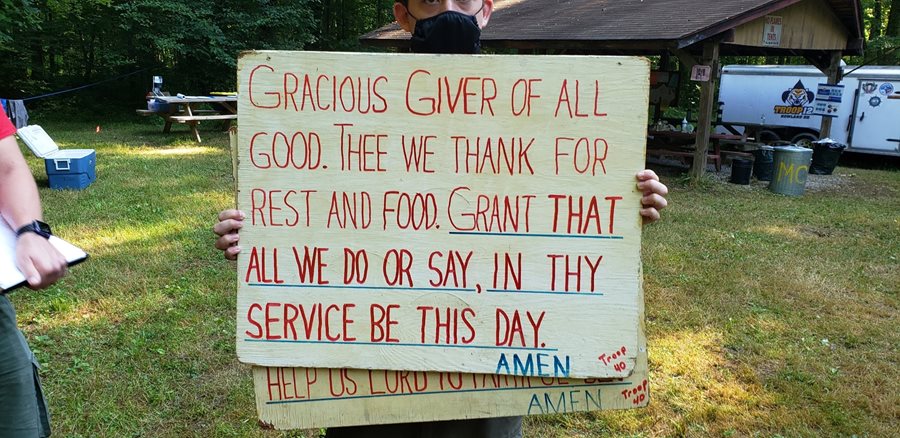 GRACIOUS GIVER OF ALL
GOOD. THEE WE THANK FOR
REST AND FOOD. GRANT THAT
ALL WE DO OR SAY, IN THY
SERVICE BE THIS DAY.
AMEN
Troop
40
HELP US LORD TO
AMEN
Troop
40
TROOP 12
MC